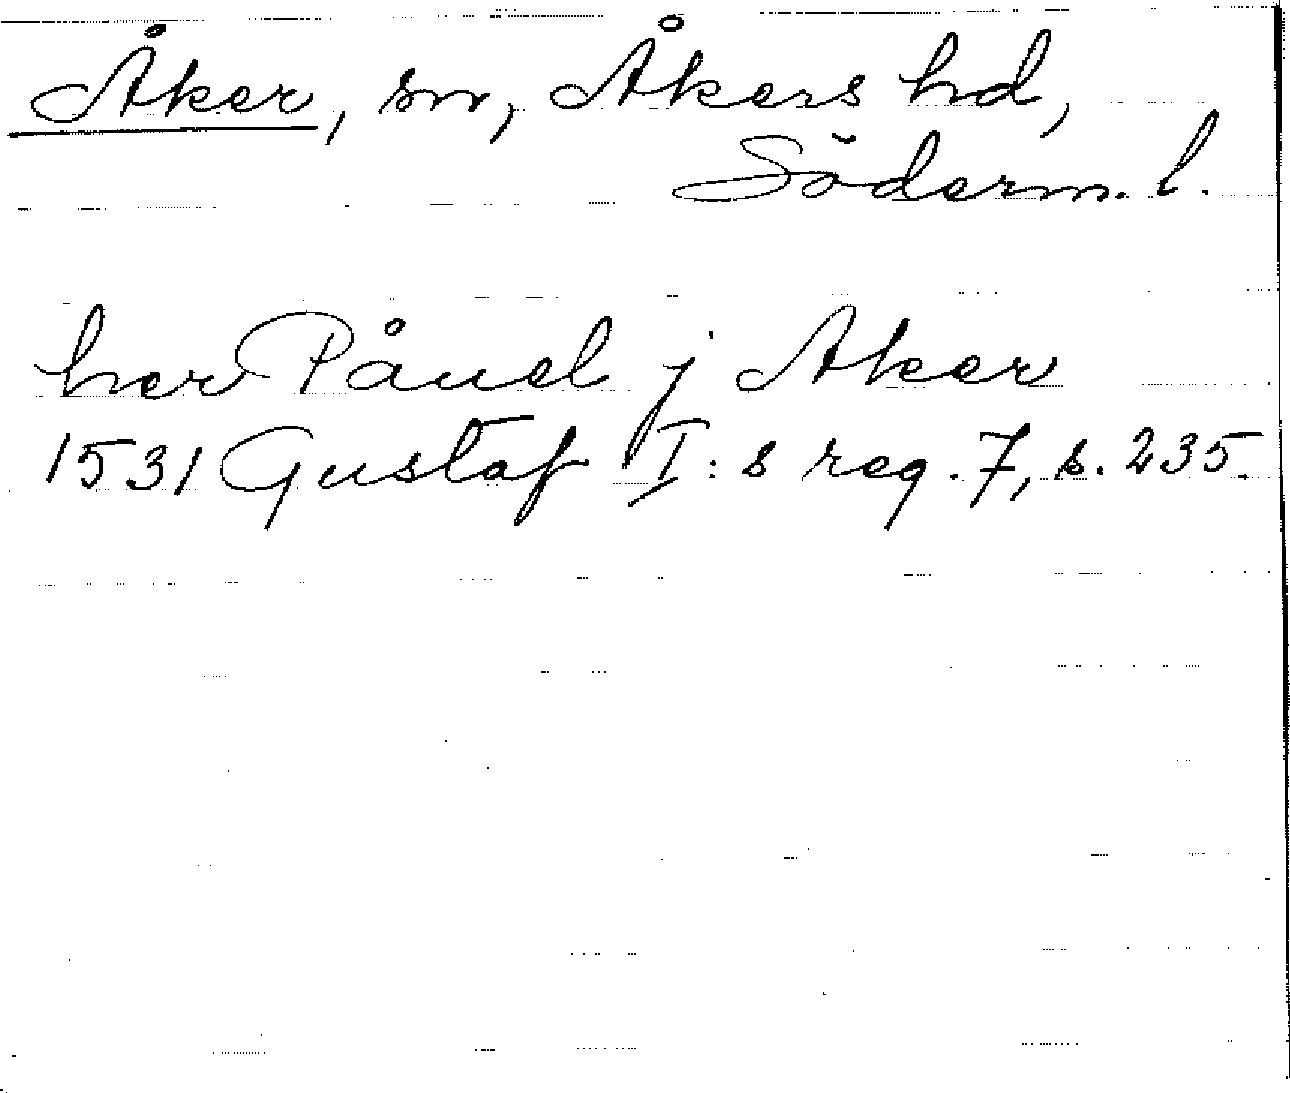 Åker, sn, Åkers hd,
Söderm. l.
her Påuel j Aker
1531 Gustaf I:s reg. 7, s. 235.